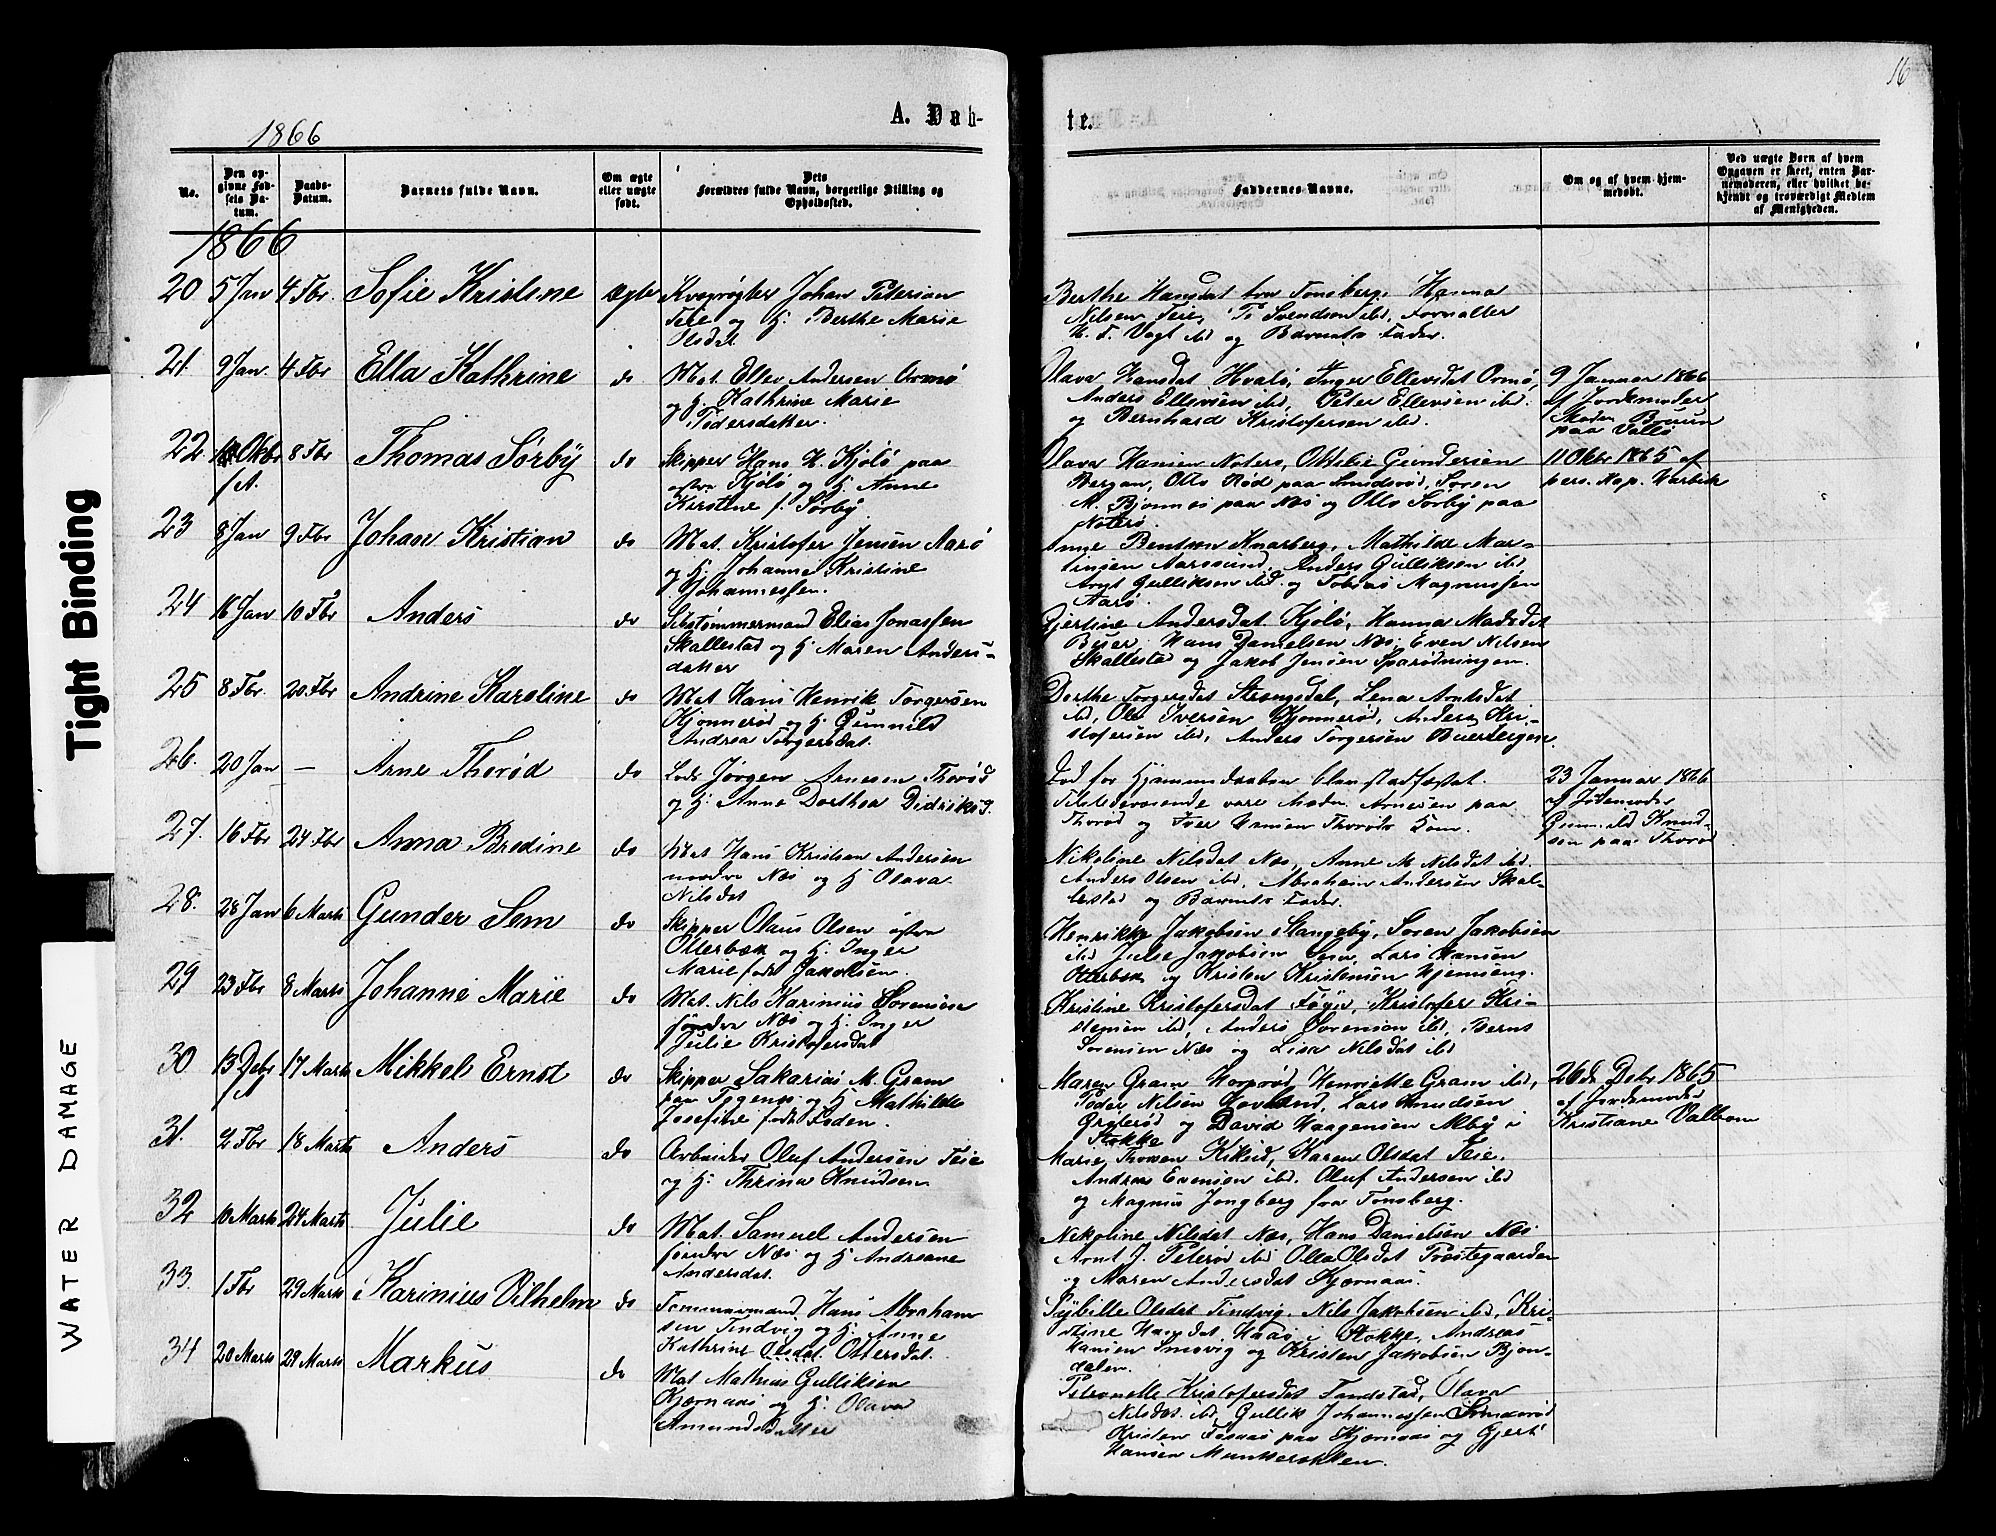 16
A. Dåb-
te.
1866
No.
Den op-
givne Fød-
sels Da-
tum.
Daabs-
Datum.
Barnets fulde Navn.
Om ægte
eller uægte
født.
Dets
Forældres fulde Navn, borgerlige Stilling og
Opholdssted.
Faddernes Navne.
Om og af hvem hjem-
medøbt.
Ved uægte Børn af hvem
Opgaven er skeet, enten Bar-
nemoderen, eller hvilket be-
kjendt og troværdigt Medlem
af Menigheden.
1866
20 5 Jan 4 Fbr. Sofie Kristine Ægte Kvægrøgter Johan Petersen
Teie og H: Berthe Marie
Olsdat
Berthe Hansdat fra Tonsberg, Hanna
Nilsen Teie, P. Svendsen ibd, Forvalter
H. F. Vogt ibd og Barnets Fader.
21. 9 Jan. 4 Fbr Ella Kathrine do Mat. Ellev Andersen Ormø
og H. Kathrine Marie
Pedersdatter.
Olava Hansdat Hvalø, Inger Ellevsdat Ormø,
Anders Ellevsen ibd, Peter Ellevsen ibd.
og Bernhard Kristofersen ibd.
9 Januar 1866
af Jordemoder
Madm Bruun
paa Vallø
22 10 Okbr 8 Fbr Thomas Sørby do Skipper Hans H. Kjølø paa
f.A. østre Kjølø og H Anne
Kirstine f. Sørby.
Olava Hansen Noterø, Ottilie Gundersen
Bergan, Otto Rød paa Smidsrød, Søren
M. Bjønnes paa Næs og Otto Sørby paa
Nøterø.
11 Okbr 1865 af
pers. Kap. Warberk
23 8 Jan 9 Fbr Johan Kristian do Mat. Kristofer Jensen Aarø
og H. Johanne Kristine
Johannessen.
Inge Bentsen Knarberg, Mathilde Mar-
tinsen Aarøsund, Anders Gulliksen ibd
Arnt Gulliksen ibd. og Tobias Magnussen
Aarø.
24 16 Jan 10 Fbr Anders do Skbstømmermand Elias Jonassen
Skallestad og H Maren Anders-
datter
Gjertine Andersdat Kjølø, Hanna Madsdat
Buer, Hans Danielsen Næs, Even Nilsen
Skallestad og Jakob Jensen Sparødningen.
25 8 Fbr. 20 Fbr Andrine Karoline do Mat Hans Henrik Torgersen
Kjønnerød og H Gunnild
Andrea Torgersdat.
Dorthe Torgersdat Strengsdal, Lena Arntsdat
ibd, Ole Iversen Kjønnerød, Anders Kri-
stofersen ibd, Anders Torgersen Buerstegen.
26. 20 Jan — Arne Thorød do Lods Jørgen Arnesen Thorød
og H. Anne Dorthea Didriksd.
Død før Hjemmedaaben blev stadfæstet.
Tilstedeværende vare Madm. Arnesen paa
Thorød og Iver Hansen Thorøds Kone.
23 Januar 1866
af Jordemoder
Gunnild Knud-
sen paa Thorød
27. 16 Fbr 24 Fbr Anna Bredine do Mat Hans Kristian Andersen
nordre Næs og H Olava
Nilsdat
Nikoline Nilsdat Næs, Anne M. Nilsdat ibd.
Anders Olsen ibd, Abraham Andersen Skal-
lestad og Barnets Fader.
28. 28 Jan 6 Marts Gunder Sem do Skipper Olaus Olsen østre
Otterbæk og H. Inger
Marie født Jakobsen.
Henrikke Jakobsen Stangeby, Soren Jakobsen
ibd Julie Jakobsen Sem, Lars Hansen
Otterbek og Kristen Kristensen Hjemseng.
29 23 Fbr 8 Marts Johanne Marie do Mat. Nils Karinius Sørensen
søndre Næs og H. Inger
Julie Kristofersdat
Kristine Kristofersdat Føyn, Kristofer Kri-
stensen ibd, Anders Sorensen ibd, Bernt
Sorensen Næs og Lisa Nilsdat ibd
30 13 Debr 17 Marts Mikkel Ernst do Skipper Sakarias M. Gram
f A paa Tegenæs og H Mathilde
Josefine født Foden.
Maren Gram Korprød, Henriette Gram ibd,
Peder Nilsen Hovland, Lars Knudsen
Grylerød og David Haagensen Melby i
Stokke
26de Debr 1865
af Jordemoder
Kristiane Valbom
31. 2 Fbr 18 Marts Anders do Arbeider Oluf Andersen Teie
og H: Thrina Knudsen
Marie Thoresen Kikud, Karen Olsdat Teie.
Andreas Evensen ibd. Oluf Andersen ibd
og Magnus Jongberg fra Tonsberg.
32 10 Marts 24 Marts Julie do Mat. Samuel Andersen
søndre Næs og H Andreane
Andersdat.
Nekoline Nilsdat Næs, Hans Danielsen Næs
Arnt J. Peterød ibd Olla Olsdat Præstegaarden
og Maren Andersdat Kjærnaas.
33. 1 Fbr 29 Marts Karinius Vilhelm do Tømmermand Hans Abraham
sen Tindvig og H. Anne
Kathrine Olsdat Ottersdat.
Sybille Olsdat Tindvig. Nils Jakobsen ibd, Kri-
stine Hansdat Haas i Stokke, Andreas
Hansen Smevig og Kristen Jakobsen Bjon-
dalen.
34 20 Marts 29 Marts Markus do Mat Mathias Gulliksen
Kjærnaas og H. Olava
Amundsdatter
Petronelle Kristofersdat Tandstad, Olava
Nilsdat ibd, Gullik Johannessen Smidsrød
Kristen Tosaas paa Kjærnaas og Gjert
Hansen Munkerekken.
Tight Binding
WATER DAMAGE